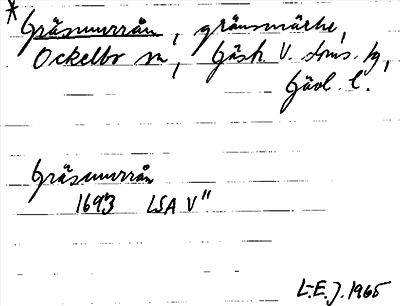 * Gräsmurrån, gränsmärke,
Ockelbo sn, Gäst. V. doms. hg,
Gävl. l.
Gräsmurrån
1693 LSA V"
L-E. J. 1965